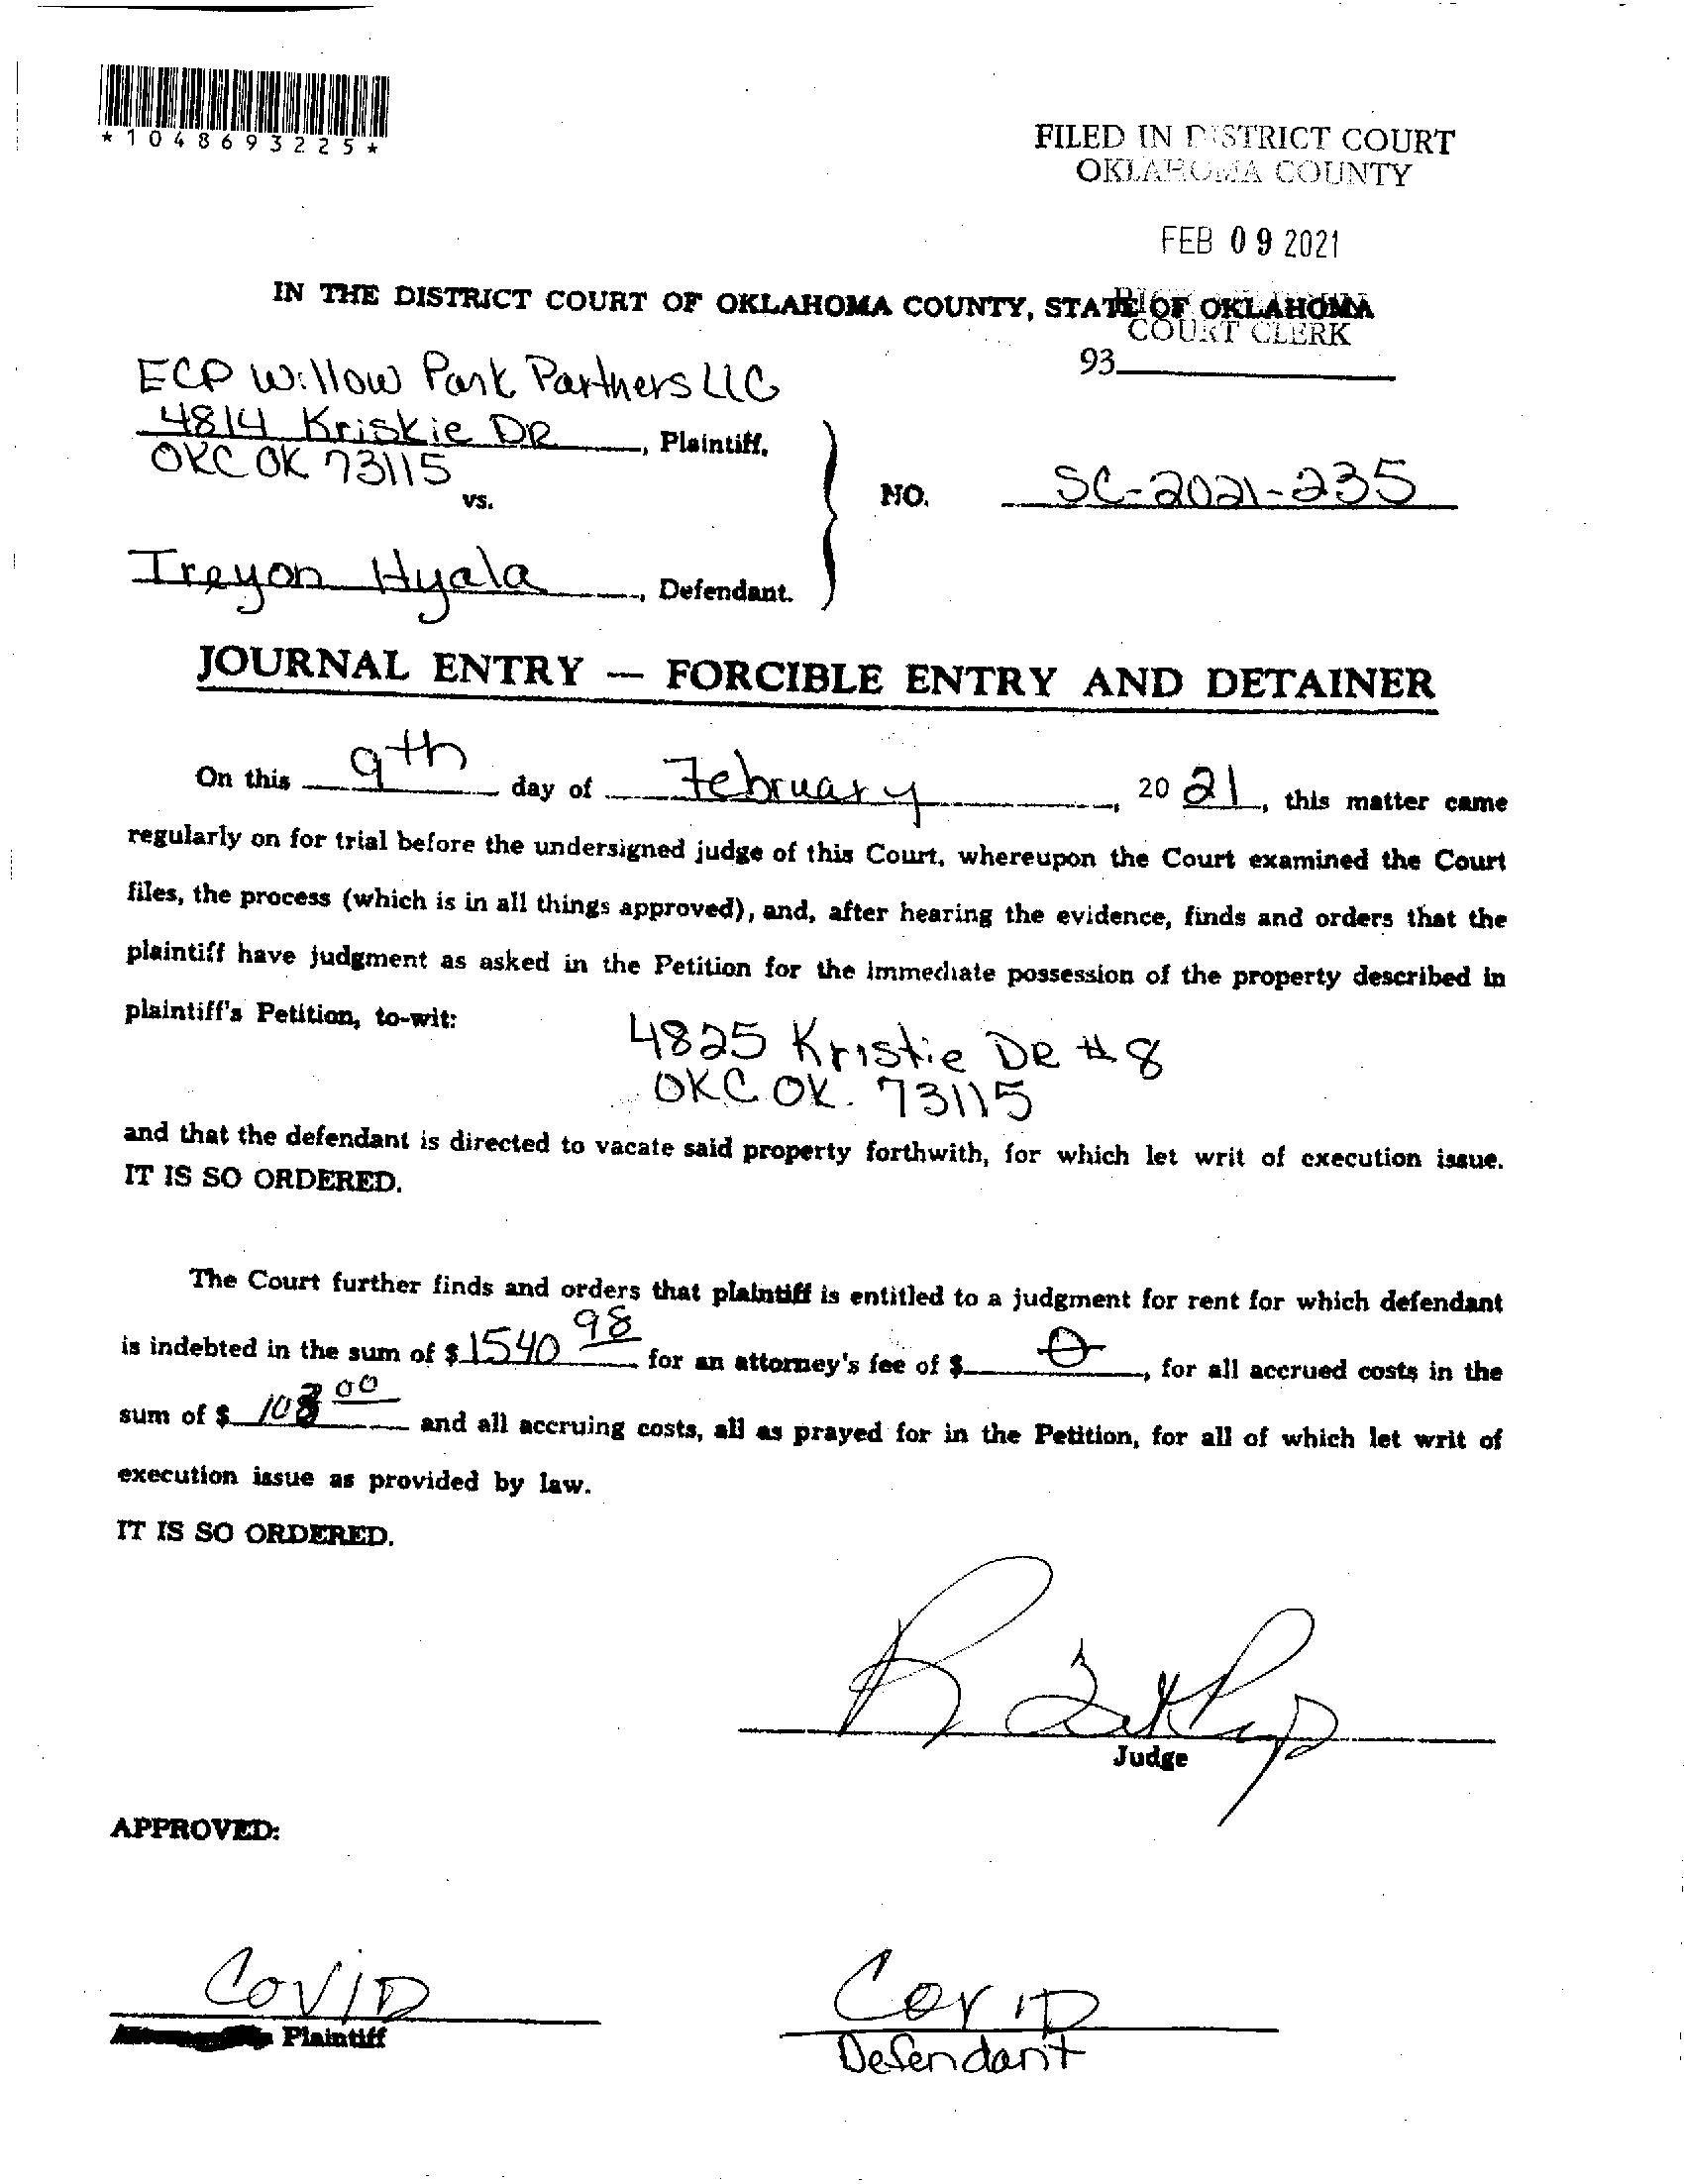 *1048693225*
FILED IN DISTRICT COURT
OKLAHOMA COUNTY
FEB 09 2021
IN THE DISTRICT COURT OF OKLAHOMA COUNTY, STATE OF OKLAHOMA
COURT CLERK
93
ECP Willow Park Partners LLC
4814 Kriskie DR, Plaintiff,
OKC OK 73115
vs.
NO. SC-2021-235
Treyon Hyala, Defendant.
JOURNAL ENTRY — FORCIBLE ENTRY AND DETAINER
On this 9th day of February, 20 21, this matter came
regularly on for trial before the undersigned judge of this Court, whereupon the Court examined the Court
files, the process (which is in all things approved), and, after hearing the evidence, finds and orders that the
plaintiff have judgment as asked in the Petition for the immediate possession of the property described in
plaintiff's Petition, to-wit:
4825 Kristie DR # 8
OKC OK. 73115
and that the defendant is directed to vacate said property forthwith, for which let writ of execution issue.
IT IS SO ORDERED.
The Court further finds and orders that plaintiff is entitled to a judgment for rent for which defendant
is indebted in the sum of $ 1540 98 for an attorney's fee of $ 0, for all accrued costs in the
sum of $ 00 and all accruing costs, all as prayed for in the Petition, for all of which let writ of
execution issue as provided by law.
IT IS SO ORDERED.
Judge
APPROVED:
COVID
Plaintiff
COVID
Defendant